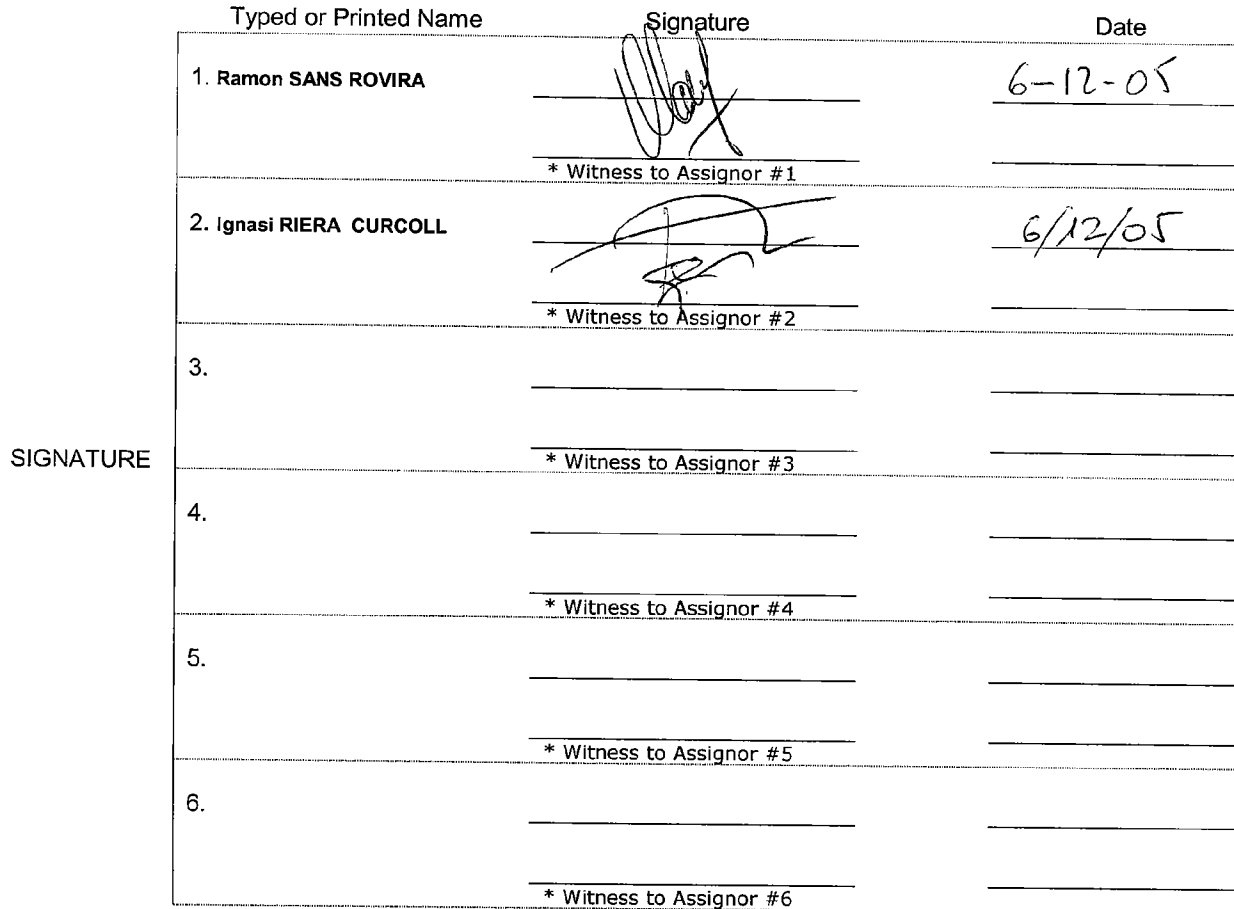 Typed or Printed Name Signature Date
1. Ramon SANS ROVIRA 6-12-05
* Witness to Assignor #1
2. Ignasi RIERA CURCOLL 6/12/05
* Witness to Assignor #2
3.
SIGNATURE
* Witness to Assignor #3
4.
* Witness to Assignor #4
5.
* Witness to Assignor #5
6.
* Witness to Assignor #6